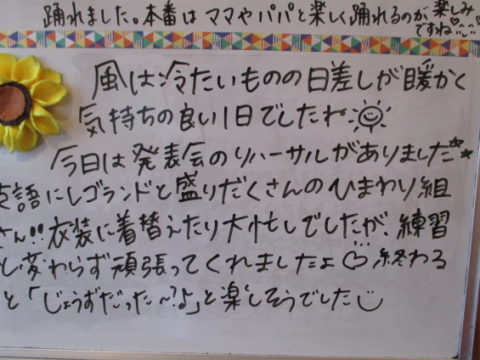 踊れました。本番はママやパパと楽しく踊れるのが楽しみ
ですね♡♡
風は冷たいものの日差しが暖かく
気持ちの良い1日でしたね
今日は発表会のリハーサルがありました
英語にレゴランドと盛りだくさんのひまわり組
さん!!衣装に着替えたり大忙しでしたが、練習
と変わらず頑張ってくれましたよ♡終わる
と「じょうずだった〜?♪」と楽しそうでした